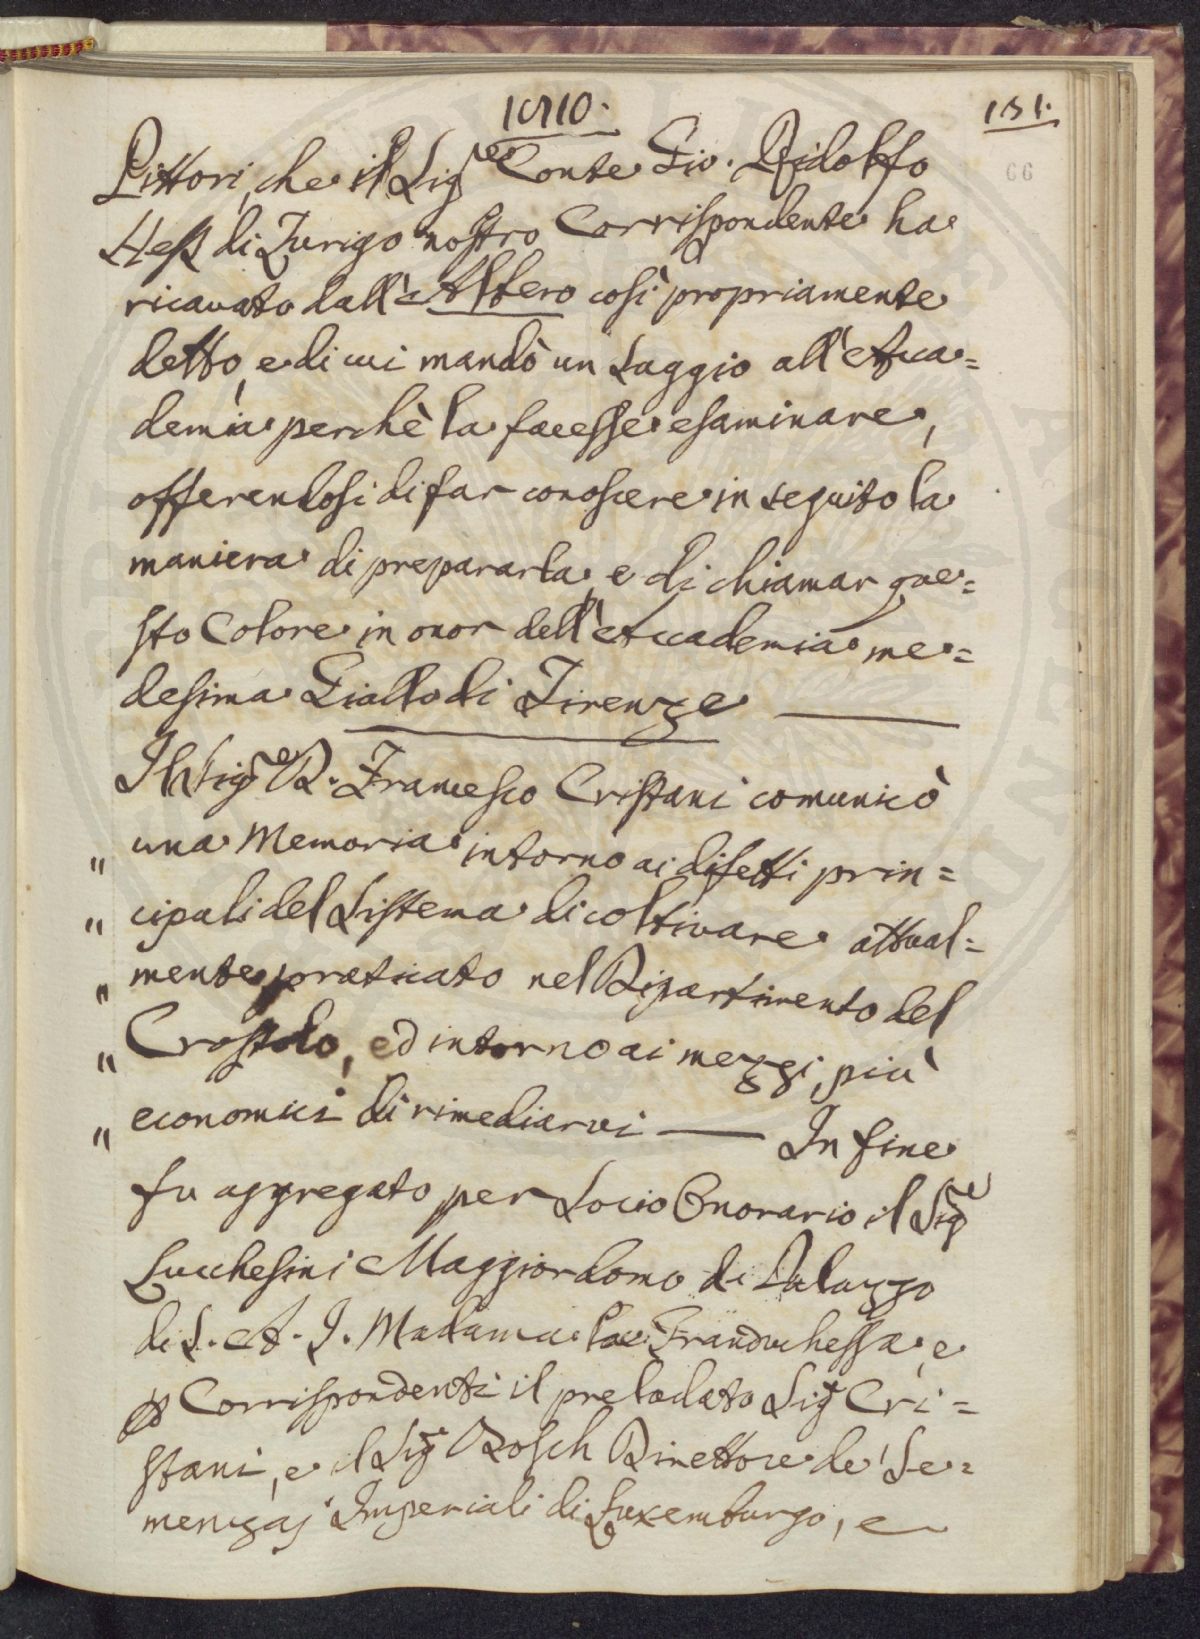 1810.
131.
66
Pittori, che il Sig.re Conte Gio. Ridolfo
Hess di Zurigo nostro Corrispondente ha
ricavato dall'Albero così propriamente
detto, e di cui mandò un Saggio all'Acca=
demia perchè la facesse esaminare,
offerendosi di far conoscere in seguito la
maniera di prepararla, e di chiamar que=
sto Colore in onor dell'Accademia me=
desima Giallo di Firenze ——
Il Sig.re D. Francesco Cristani comunicò
" una Memoria intorno ai difetti prin=
" cipali del Sistema di coltivare attual=
" mente praticato nel Dipartimento del
" Crostolo, ed intorno ai mezzi più
" economici di rimediarvi —— In fine
fu aggregato per Socio Onorario il Sig.e
Lucchesini Maggiordomo di Palazzo
di S. A. I. Madama la Granduchessa, e
Corrispondenti il prelodato Sig.r Cri=
stani, e il Sig.r Bosch Direttore de' Se=
menzaj Imperiali di Luxemburgo, e